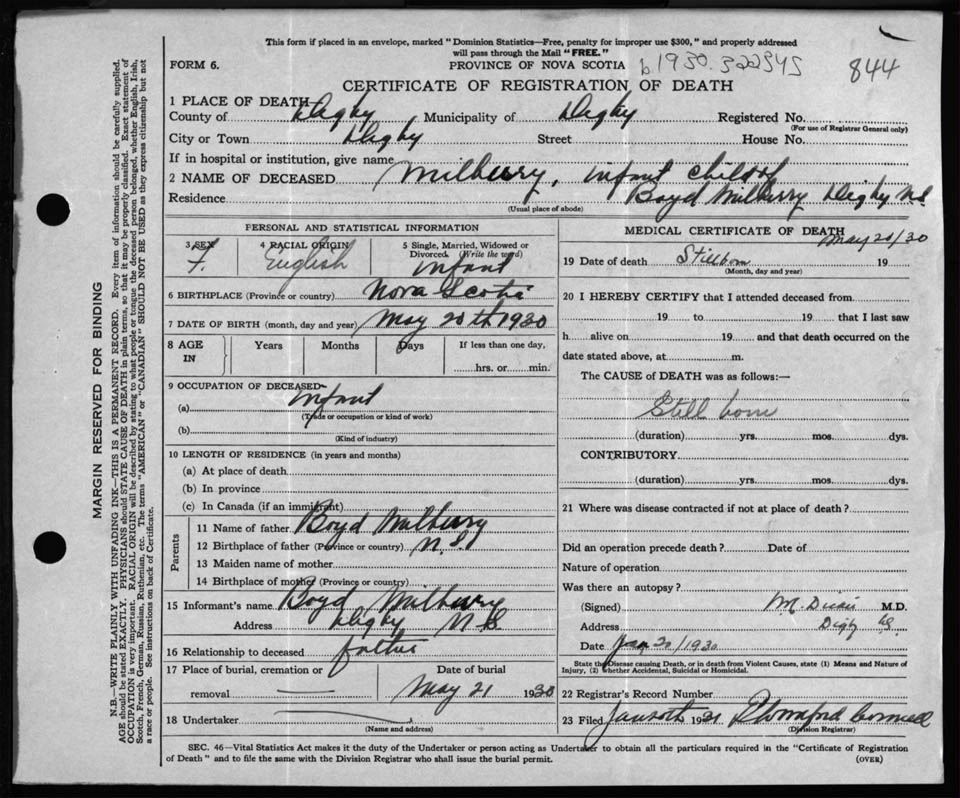 This form if placed in an envelope, marked "Dominion Statistics—Free, penalty for improper use $300," and properly addressed
will pass through the Mail "FREE."
FORM 6.
PROVINCE OF NOVA SCOTIA
b. 1930. 322345
844
CERTIFICATE OF REGISTRATION OF DEATH
1 PLACE OF DEATH
County of Digby Municipality of Digby Registered No.
(For use of Registrar General only)
City or Town Digby Street House No.
If in hospital or institution, give name
2 NAME OF DECEASED Milberry, infant child of
Residence Boyd Milberry Digby N.S.
(Usual place of abode)
PERSONAL AND STATISTICAL INFORMATION
3 SEX 4 RACIAL ORIGIN 5 Single, Married, Widowed or
Divorced. (Write the word)
F. English infant
6 BIRTHPLACE (Province or country) Nova Scotia
7 DATE OF BIRTH (month, day and year) May 20th 1930
8 AGE IN Years Months Days If less than one day,
hrs. or min.
9 OCCUPATION OF DECEASED
(a) Infant
(Trade or occupation or kind of work)
(b)
(Kind of industry)
10 LENGTH OF RESIDENCE (in years and months)
(a) At place of death
(b) In province
(c) In Canada (if an immigrant)
Parents
11 Name of father Boyd Milberry
12 Birthplace of father (Province or country) N.S.
13 Maiden name of mother
14 Birthplace of mother (Province or country)
15 Informant's name Boyd Milberry
Address Digby N.S.
16 Relationship to deceased father
17 Place of burial, cremation or Date of burial
removal May 21 1930
18 Undertaker
(Name and address)
MEDICAL CERTIFICATE OF DEATH
May 20/30
19 Date of death Stillborn 19
(Month, day and year)
20 I HEREBY CERTIFY that I attended deceased from
19 to 19 that I last saw
h alive on 19 and that death occurred on the
date stated above, at m.
The CAUSE of DEATH was as follows:—
Still born
(duration) yrs. mos. dys.
CONTRIBUTORY
(duration) yrs. mos. dys.
21 Where was disease contracted if not at place of death?
Did an operation precede death? Date of
Nature of operation
Was there an autopsy?
(Signed) M.D.
Address Digby
Date 1930
State the Disease causing Death, or in death from Violent Causes, state (1) Means and Nature of
Injury, (2) whether Accidental, Suicidal or Homicidal.
22 Registrar's Record Number
23 Filed 1931
(Division Registrar)
SEC. 46—Vital Statistics Act makes it the duty of the Undertaker or person acting as Undertaker to obtain all the particulars required in the "Certificate of Registration
of Death" and to file the same with the Division Registrar who shall issue the burial permit.
(OVER)
MARGIN RESERVED FOR BINDING
N.B.—WRITE PLAINLY WITH UNFADING INK—THIS IS A PERMANENT RECORD. Every item of information should be carefully supplied.
AGE should be stated EXACTLY. PHYSICIANS should STATE CAUSE OF DEATH in plain terms, so that it may be properly classified. Exact statement of
OCCUPATION is very important. RACIAL ORIGIN will be described by stating to what people or tongue the deceased person belonged, whether English, Irish,
Scotch, French, German, Russian, Ruthenian, etc. The terms "AMERICAN" or "CANADIAN" SHOULD NOT BE USED as they express citizenship but not
a race or people. See instructions on back of Certificate.